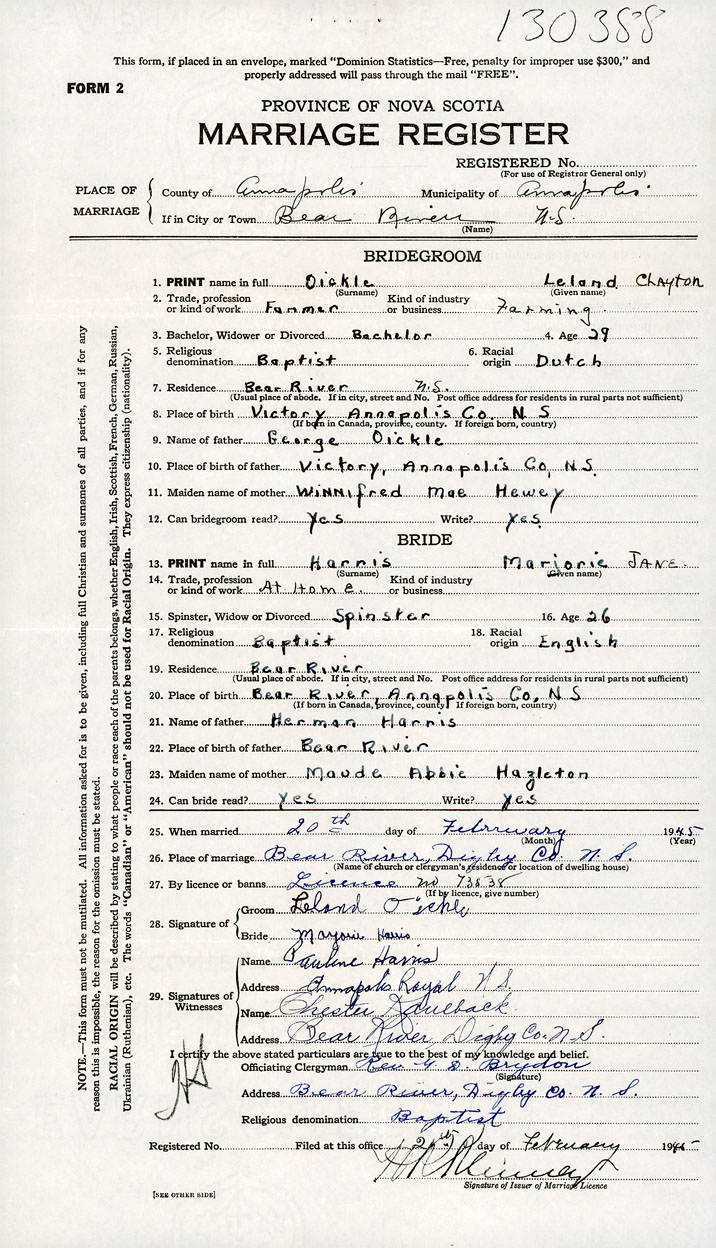 130388
This form, if placed in an envelope, marked "Dominion Statistics—Free, penalty for improper use $300," and
properly addressed will pass through the mail "FREE".
FORM 2
PROVINCE OF NOVA SCOTIA
MARRIAGE REGISTER
REGISTERED No.
(For use of Registrar General only)
PLACE OF MARRIAGE
County of Annapolis Municipality of Annapolis
If in City or Town Bear River N.S.
(Name)
BRIDEGROOM
1. PRINT name in full Oickle Leland Clayton
(Surname) (Given name)
2. Trade, profession or kind of work Farmer Kind of industry or business Farming
3. Bachelor, Widower or Divorced Bachelor 4. Age 29
5. Religious denomination Baptist 6. Racial origin Dutch
7. Residence Bear River N.S.
(Usual place of abode. If in city, street and No. Post office address for residents in rural parts not sufficient)
8. Place of birth Victory Annapolis Co. N S
(If born in Canada, province, county. If foreign born, country)
9. Name of father George Oickle
10. Place of birth of father Victory, Annapolis Co, N S.
11. Maiden name of mother Winnifred Mae Hewey
12. Can bridegroom read? Yes Write? Yes
BRIDE
13. PRINT name in full Harris Marjorie JANE.
(Surname) (Given name)
14. Trade, profession or kind of work At Home Kind of industry or business
15. Spinster, Widow or Divorced Spinster 16. Age 26
17. Religious denomination Baptist 18. Racial origin English
19. Residence Bear River
(Usual place of abode. If in city, street and No. Post office address for residents in rural parts not sufficient)
20. Place of birth Bear River, Annapolis Co, N S
(If born in Canada, province, county If foreign born, country)
21. Name of father Herman Harris
22. Place of birth of father Bear River
23. Maiden name of mother Maude Abbie Hazleton
24. Can bride read? Yes Write? Yes
25. When married 20th day of February 1945
(Month) (Year)
26. Place of marriage Bear River, Digby Co. N. S.
(Name of church or clergyman's residence or location of dwelling house)
27. By licence or banns Licence no 73838
(If by licence, give number)
28. Signature of
Groom Leland Oickle
Bride Marjorie Harris
29. Signatures of Witnesses
Name Pauline Harris
Address Annapolis Royal N S.
Name Chester
Address Bear River, Digby Co. N. S.
I certify the above stated particulars are true to the best of my knowledge and belief.
Officiating Clergyman Rev. G. D. Brydon
(Signature)
Address Bear River, Digby Co. N. S.
Religious denomination Baptist
Registered No. Filed at this office day of February 1945
Signature of Issuer of Marriage Licence
[SEE OTHER SIDE]
NOTE.—This form must not be mutilated. All information asked for is to be given, including full Christian and surnames of all parties, and if for any
reason this is impossible, the reason for the omission must be stated.
RACIAL ORIGIN will be described by stating to what people or race each of the parents belongs, whether English, Irish, Scottish, French, German, Russian,
Ukrainian (Ruthenian), etc. The words "Canadian" or "American" should not be used for Racial Origin. They express citizenship (nationality).